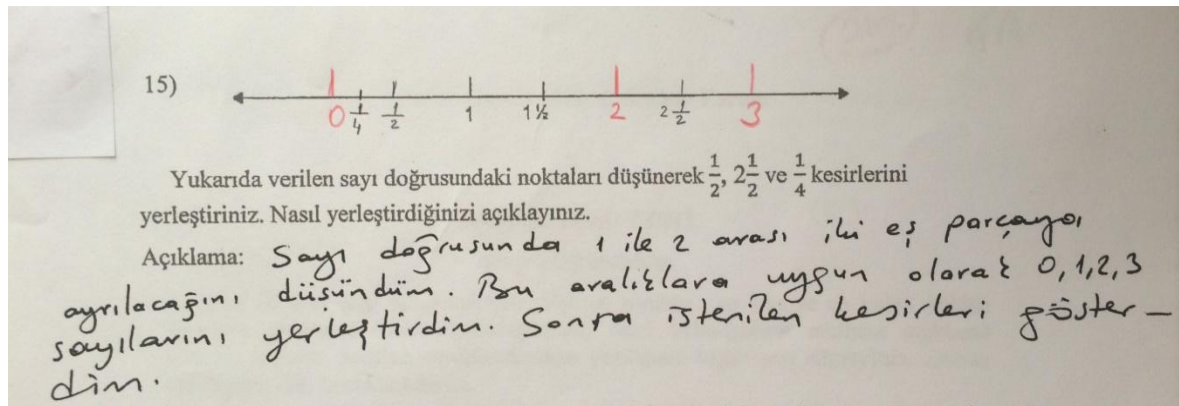 15)
0 1/4 1/2 1 1 ½ 2 2 1/2 3
Yukarıda verilen sayı doğrusundaki noktaları düşünerek 1/2, 2 1/2 ve 1/4 kesirlerini
yerleştiriniz. Nasıl yerleştirdiğinizi açıklayınız.
Açıklama: Sayı doğrusunda 1 ile 2 arası iki eş parçaya
ayrılacağını düşündüm. Bu aralıklara uygun olarak 0,1,2,3
sayılarını yerleştirdim. Sonra istenilen kesirleri göster-
dim.